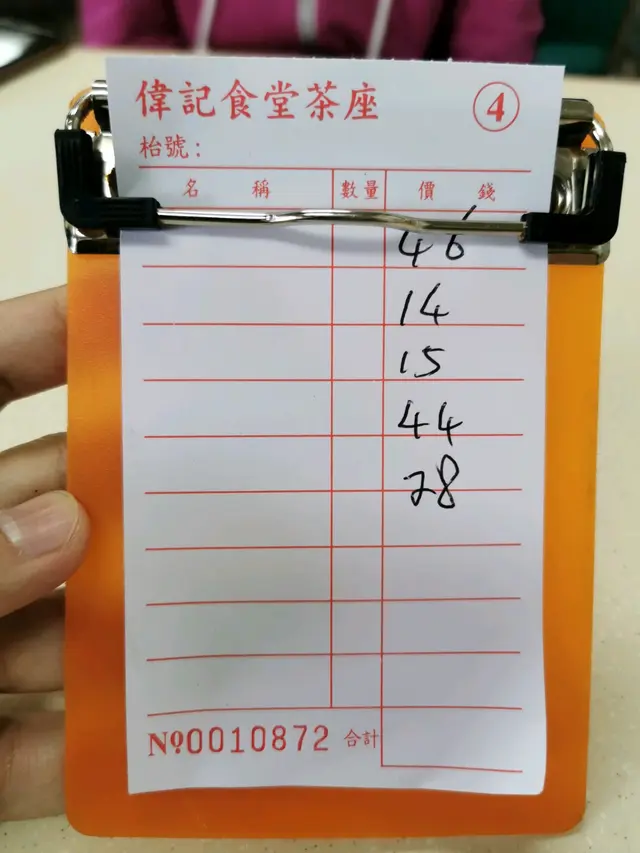 偉記食堂茶座 ④
枱號：
名 稱 數量 價 錢
46
14
15
44
28
№0010872 合計